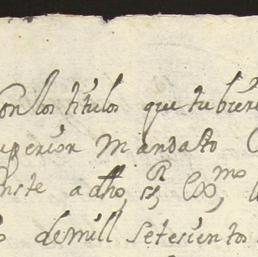 Con los titulos que tubiere
uperior Mandato
nste a dho, sr, Exmo,
demill setesientos